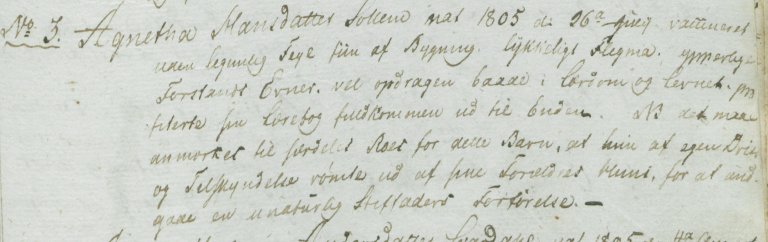 No 3. Agnetha Hansdatter Sollem nat 1805 d. 26de vaccineret
uden legemlig Feyl fiin af Bygning. lykkeligt Flegma. ypperlige
Forstands Evner. vel opdragen baade i Lærdom og Levnet.
sin Lærebog fuldkommen ud til Enden. NB det maae
anmærkes til særdeles Roes for dette Barn, at hun af egen Drift
og Tilskyndelse rømte ud af sine Forældres Huus, for at und-
gaae en unaturlig Stiffaders Forførelse. —
Andersdatter nat 1805 d. 4de